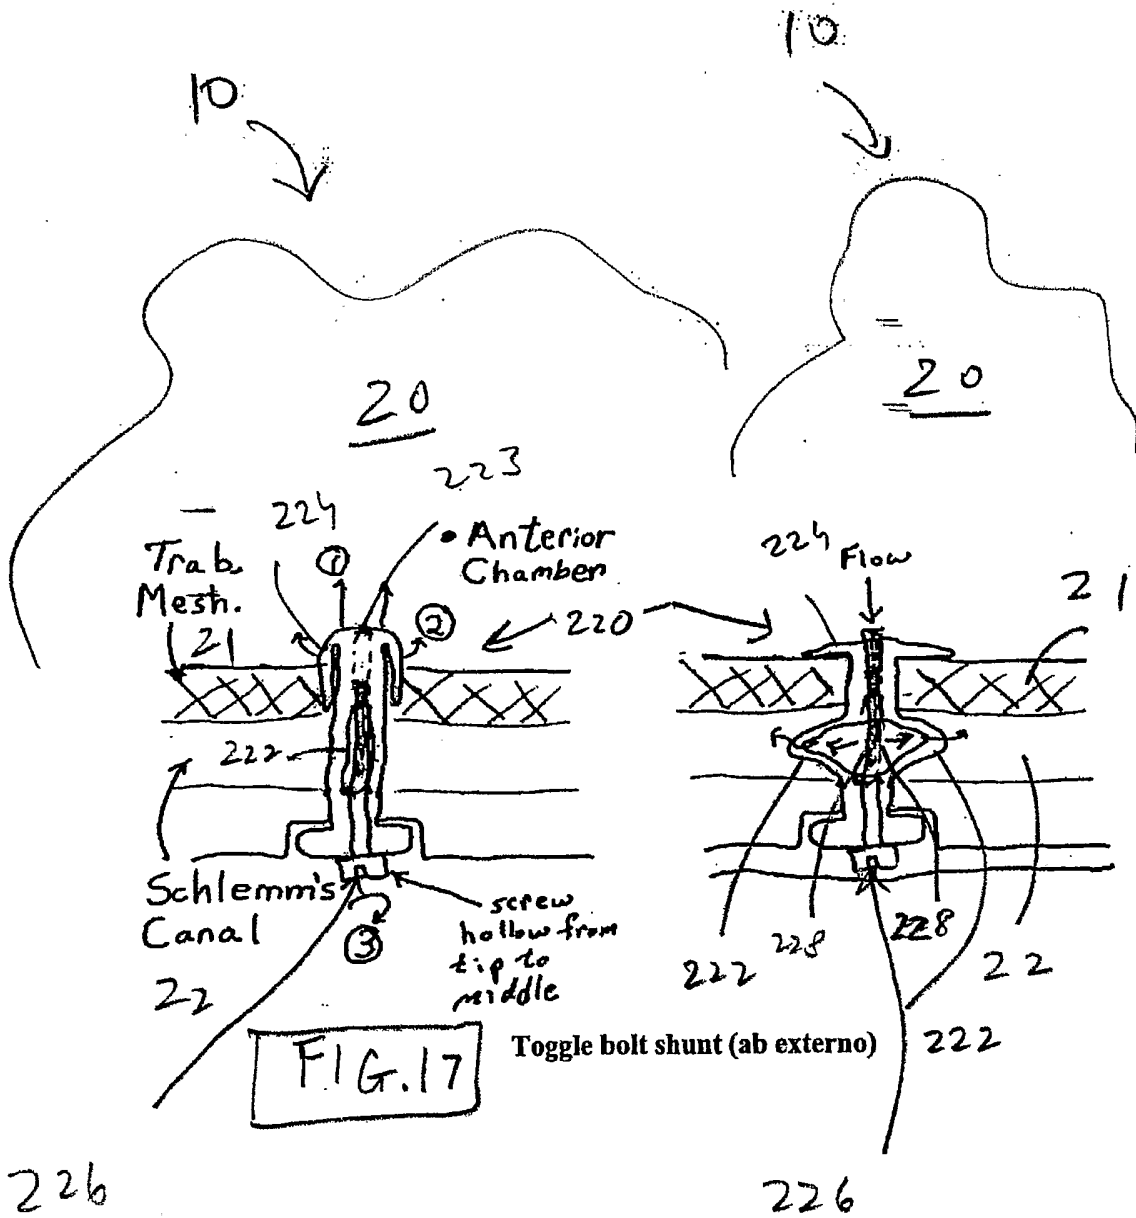 10
10
20
20
223
224
• Anterior
Chamber
Trab.
Mesh.
①
②
21
220
224
Flow
21
222
Schlemm's
Canal
③
screw
hollow from
tip to
middle
22
222
228
228
22
FIG.17
Toggle bolt shunt (ab externo)
222
226
226